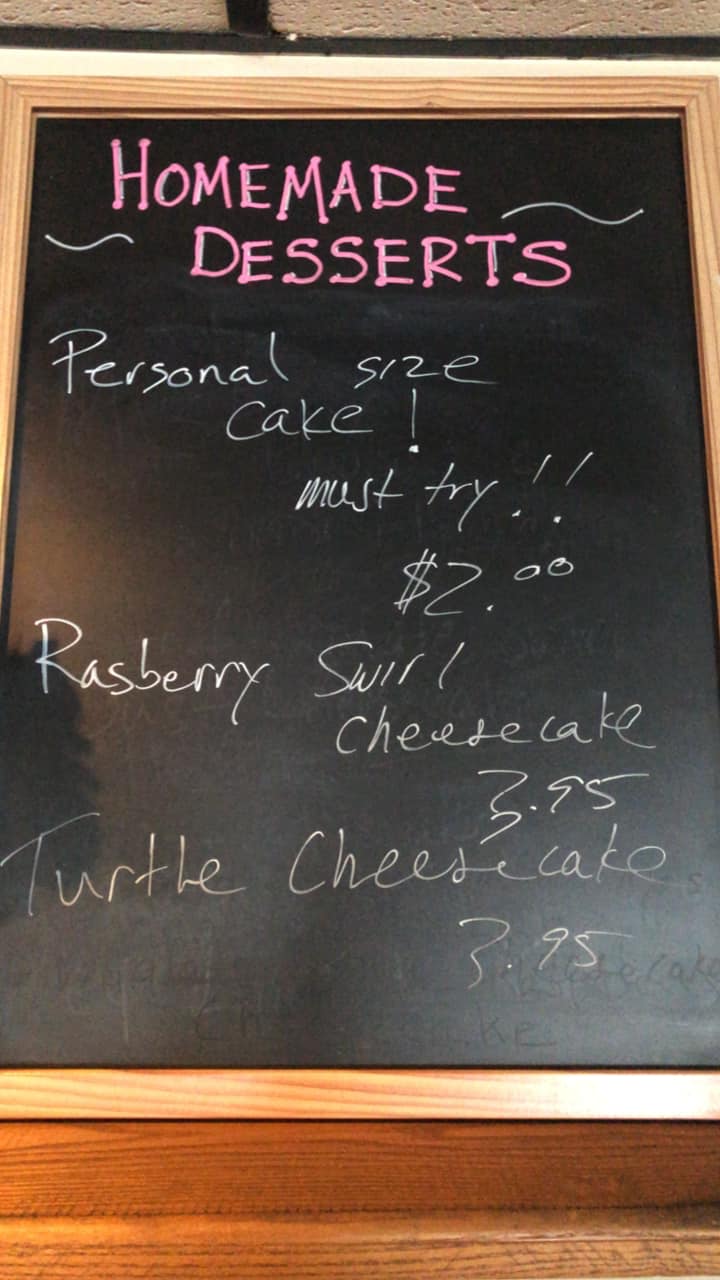 HOMEMADE
DESSERTS
Personal size
cake!
must try!!
$2.00
Rasberry Swirl
Cheesecake
3.95
Turtle Cheesecake
3.95